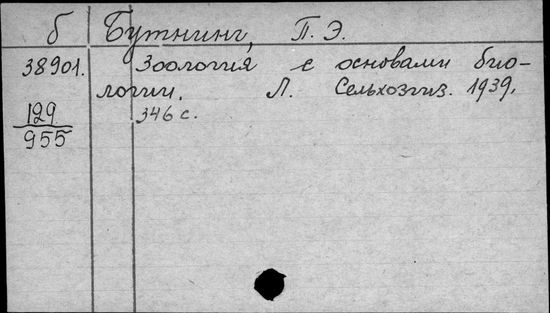 б Бутнинг, П. Э.
38901. Зоология с основами био-
логии. Л. Сельхозгиз. 1939.
129 346 с.
955